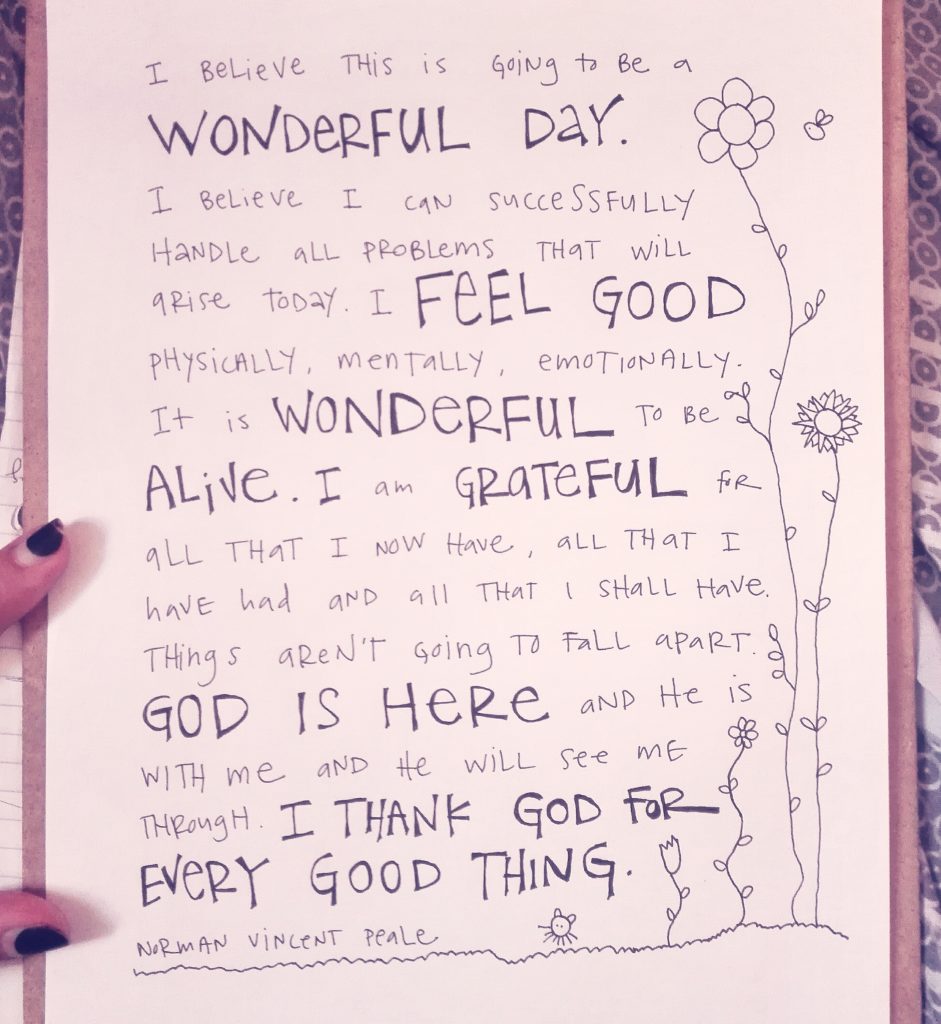 I BELIEVE THIS is GOING to BE a
WONDERFUL DAY.
I BELIEVE I CAN SUCCESSFULLY
HANDLE ALL PROBLEMS THAT WILL
ARISE TODAY. I FEEL GOOD
PHYSICALLY, MENTALLY, EMOTIONALLY.
It is WONDERFUL TO BE
ALiVE. I am GRATEFUL FOR
ALL THAT I NOW HAVE, ALL THAT I
HAVE had AND all THAT I SHALL HAVE.
THiNGS AREN'T GOING TO FALL APART.
GOD IS HERE AND HE iS
WITH me AND HE WiLL See ME
THROUGH. I THANK GOD FOR
EVERY GOOD THING.
NORMAN ViNCENT PEALE